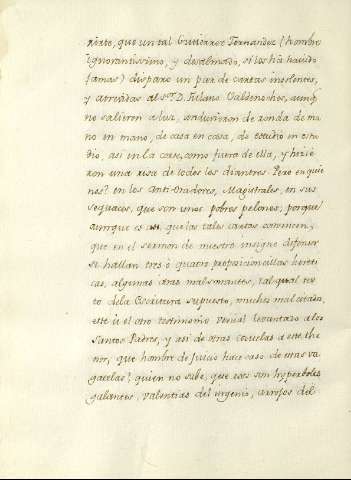 rirto, que un tal Gutierrez Fernandez (hombre
ignorantissimo, y desalmado, si los ha havido
jamas) disparó un par de cartas insolentes,
y atrevidas al Sr. D. Fulano Valdenoches, aunq
no salieron a luz, anduvieron de ronda de ma
no en mano, de casa en casa, de estudio en estu
dio, asi en la corte, como fuera de ella, y hizie
ron una risa de todos los diantres. Pero en quie
nes? en los Anti-Oradores, Magistrales, en sus
sequaces, que son unos pobres pelones; porque
aunque es assi, que las tales cartas convencen,
que en el sermon de nuestro insigne difensor
se hallan tres ó quatro proposicioncillas hereti
cas, algunas otras mal sonantes, tal qual tex
to de la Escritura supuesto, muchos mal citados,
este ú el otro testimonio venial levantado a los
Santos Padres, y asi de otras cosuelas a este the
nor, que hombre de juicio hace caso de estas va
gatelas? quien no sabe, que esos son hyperboles
galientes, valentias del ingenio, arrojos del